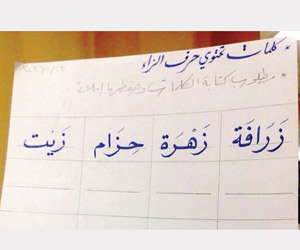 * كلمات تحتوي حرف الزاء
* مطلوب كتابة الكلمات وحفظها إملاءً.
زَرَافَة زَهْرَة حِزَام زَيْت